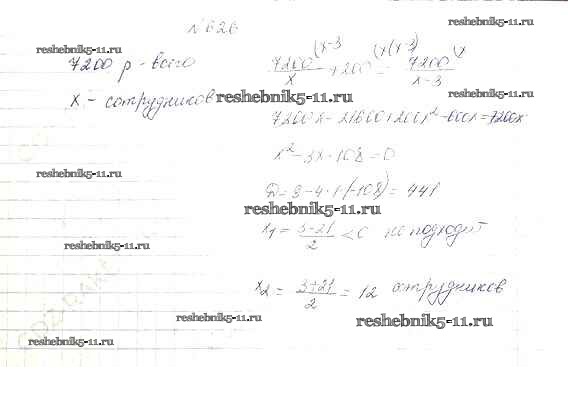 №626
reshebnik5-11.ru
reshebnik5-11.ru
7200 р - всего
7200/x (x-3 + 200 (x(x-3) = 7200/x-3 (x
x - сотрудников
reshebnik5-11.ru
7200x - 21600 + 200x² - 600x = 7200x
x² - 3x - 108 = 0
reshebnik5-11.ru
D = 9 - 4 · 1 (-108) = 441
reshebnik5-11.ru
x₁ = 3-21/2 < 0 не подходит
reshebnik5-11.ru
x₂ = 3+21/2 = 12 сотрудников
reshebnik5-11.ru
reshebnik5-11.ru
reshebnik5-11.ru